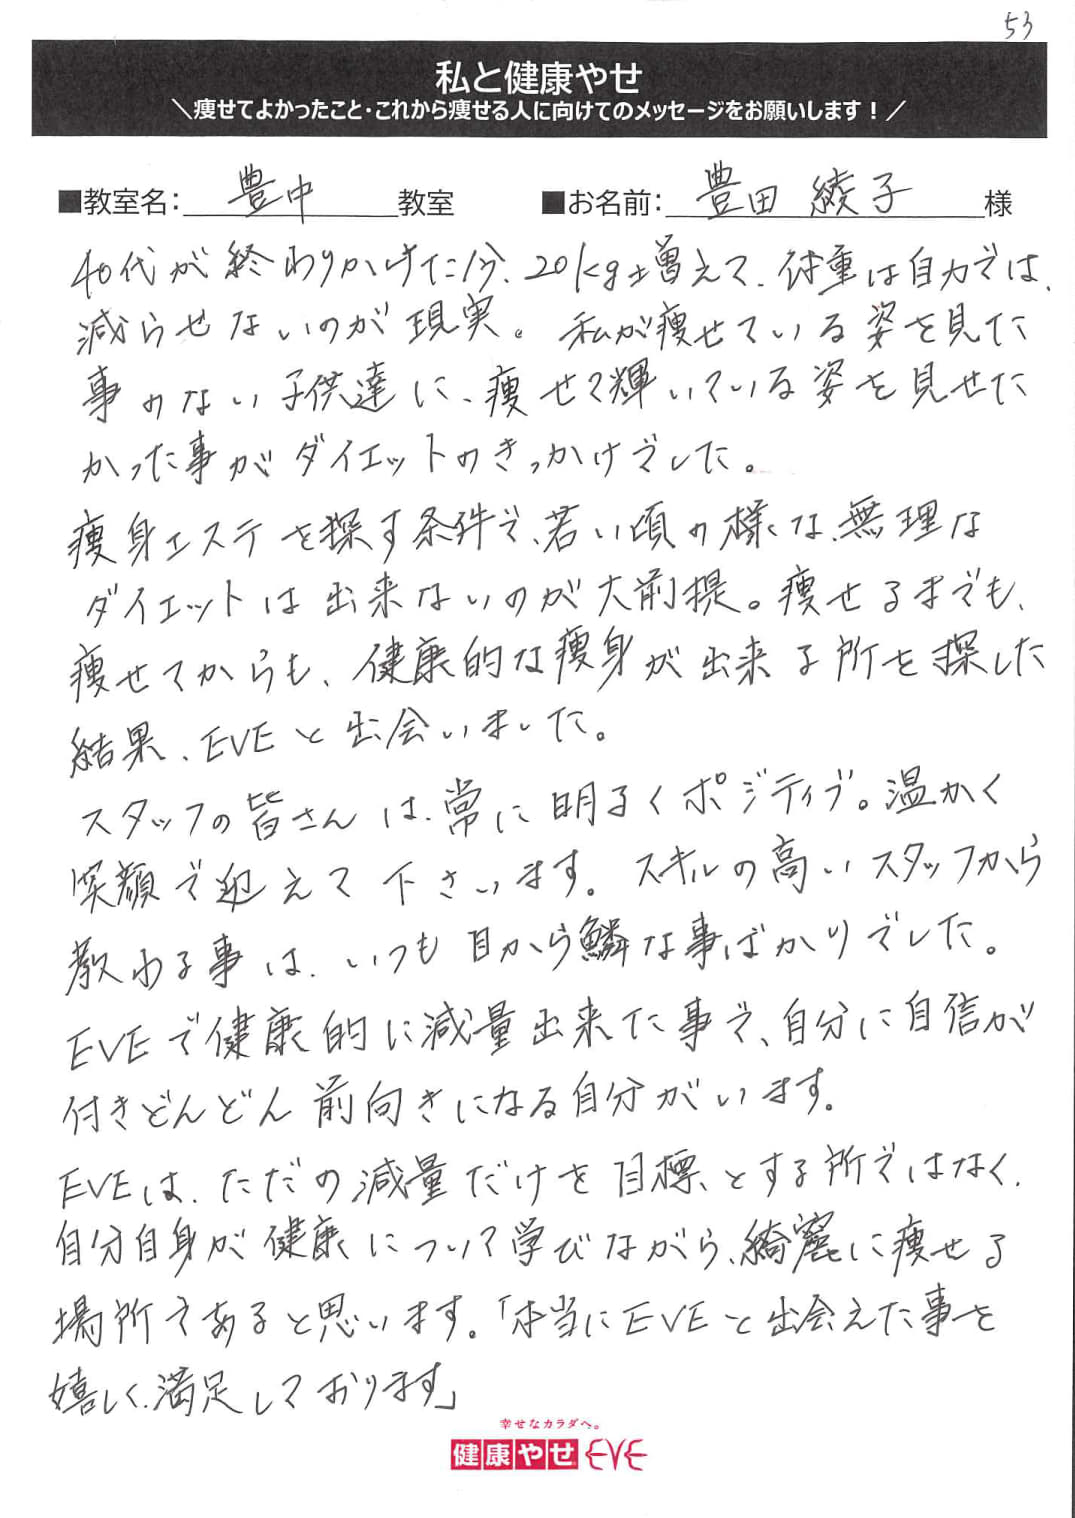 53
私と健康やせ
＼痩せてよかったこと・これから痩せる人に向けてのメッセージをお願いします！／
■教室名：豊中教室 ■お名前：豊田 綾子 様
40代が終わりかけた時、20kg増えて、体重は自力では、
減らせないのが現実。私が痩せている姿を見た
事のない子供達に、痩せて輝いている姿を見せた
かった事がダイエットのきっかけでした。
痩身エステを探す条件で、若い頃の様な、無理な
ダイエットは出来ないのが大前提。痩せるまでも、
痩せてからも、健康的な痩身が出来る所を探した
結果、EVEと出会いました。
スタッフの皆さんは、常に明るくポジティブ。温かく
笑顔で迎えて下さいます。スキルの高いスタッフから
教わる事は、いつも目から鱗な事ばかりでした。
EVEで健康的に減量出来た事で、自分に自信が
付きどんどん前向きになる自分がいます。
EVEは、ただの減量だけを目標とする所ではなく、
自分自身が健康について学びながら、綺麗に痩せる
場所であると思います。「本当にEVEと出会えた事を
嬉しく、満足しております」
幸せなカラダへ。
健康やせ EVE